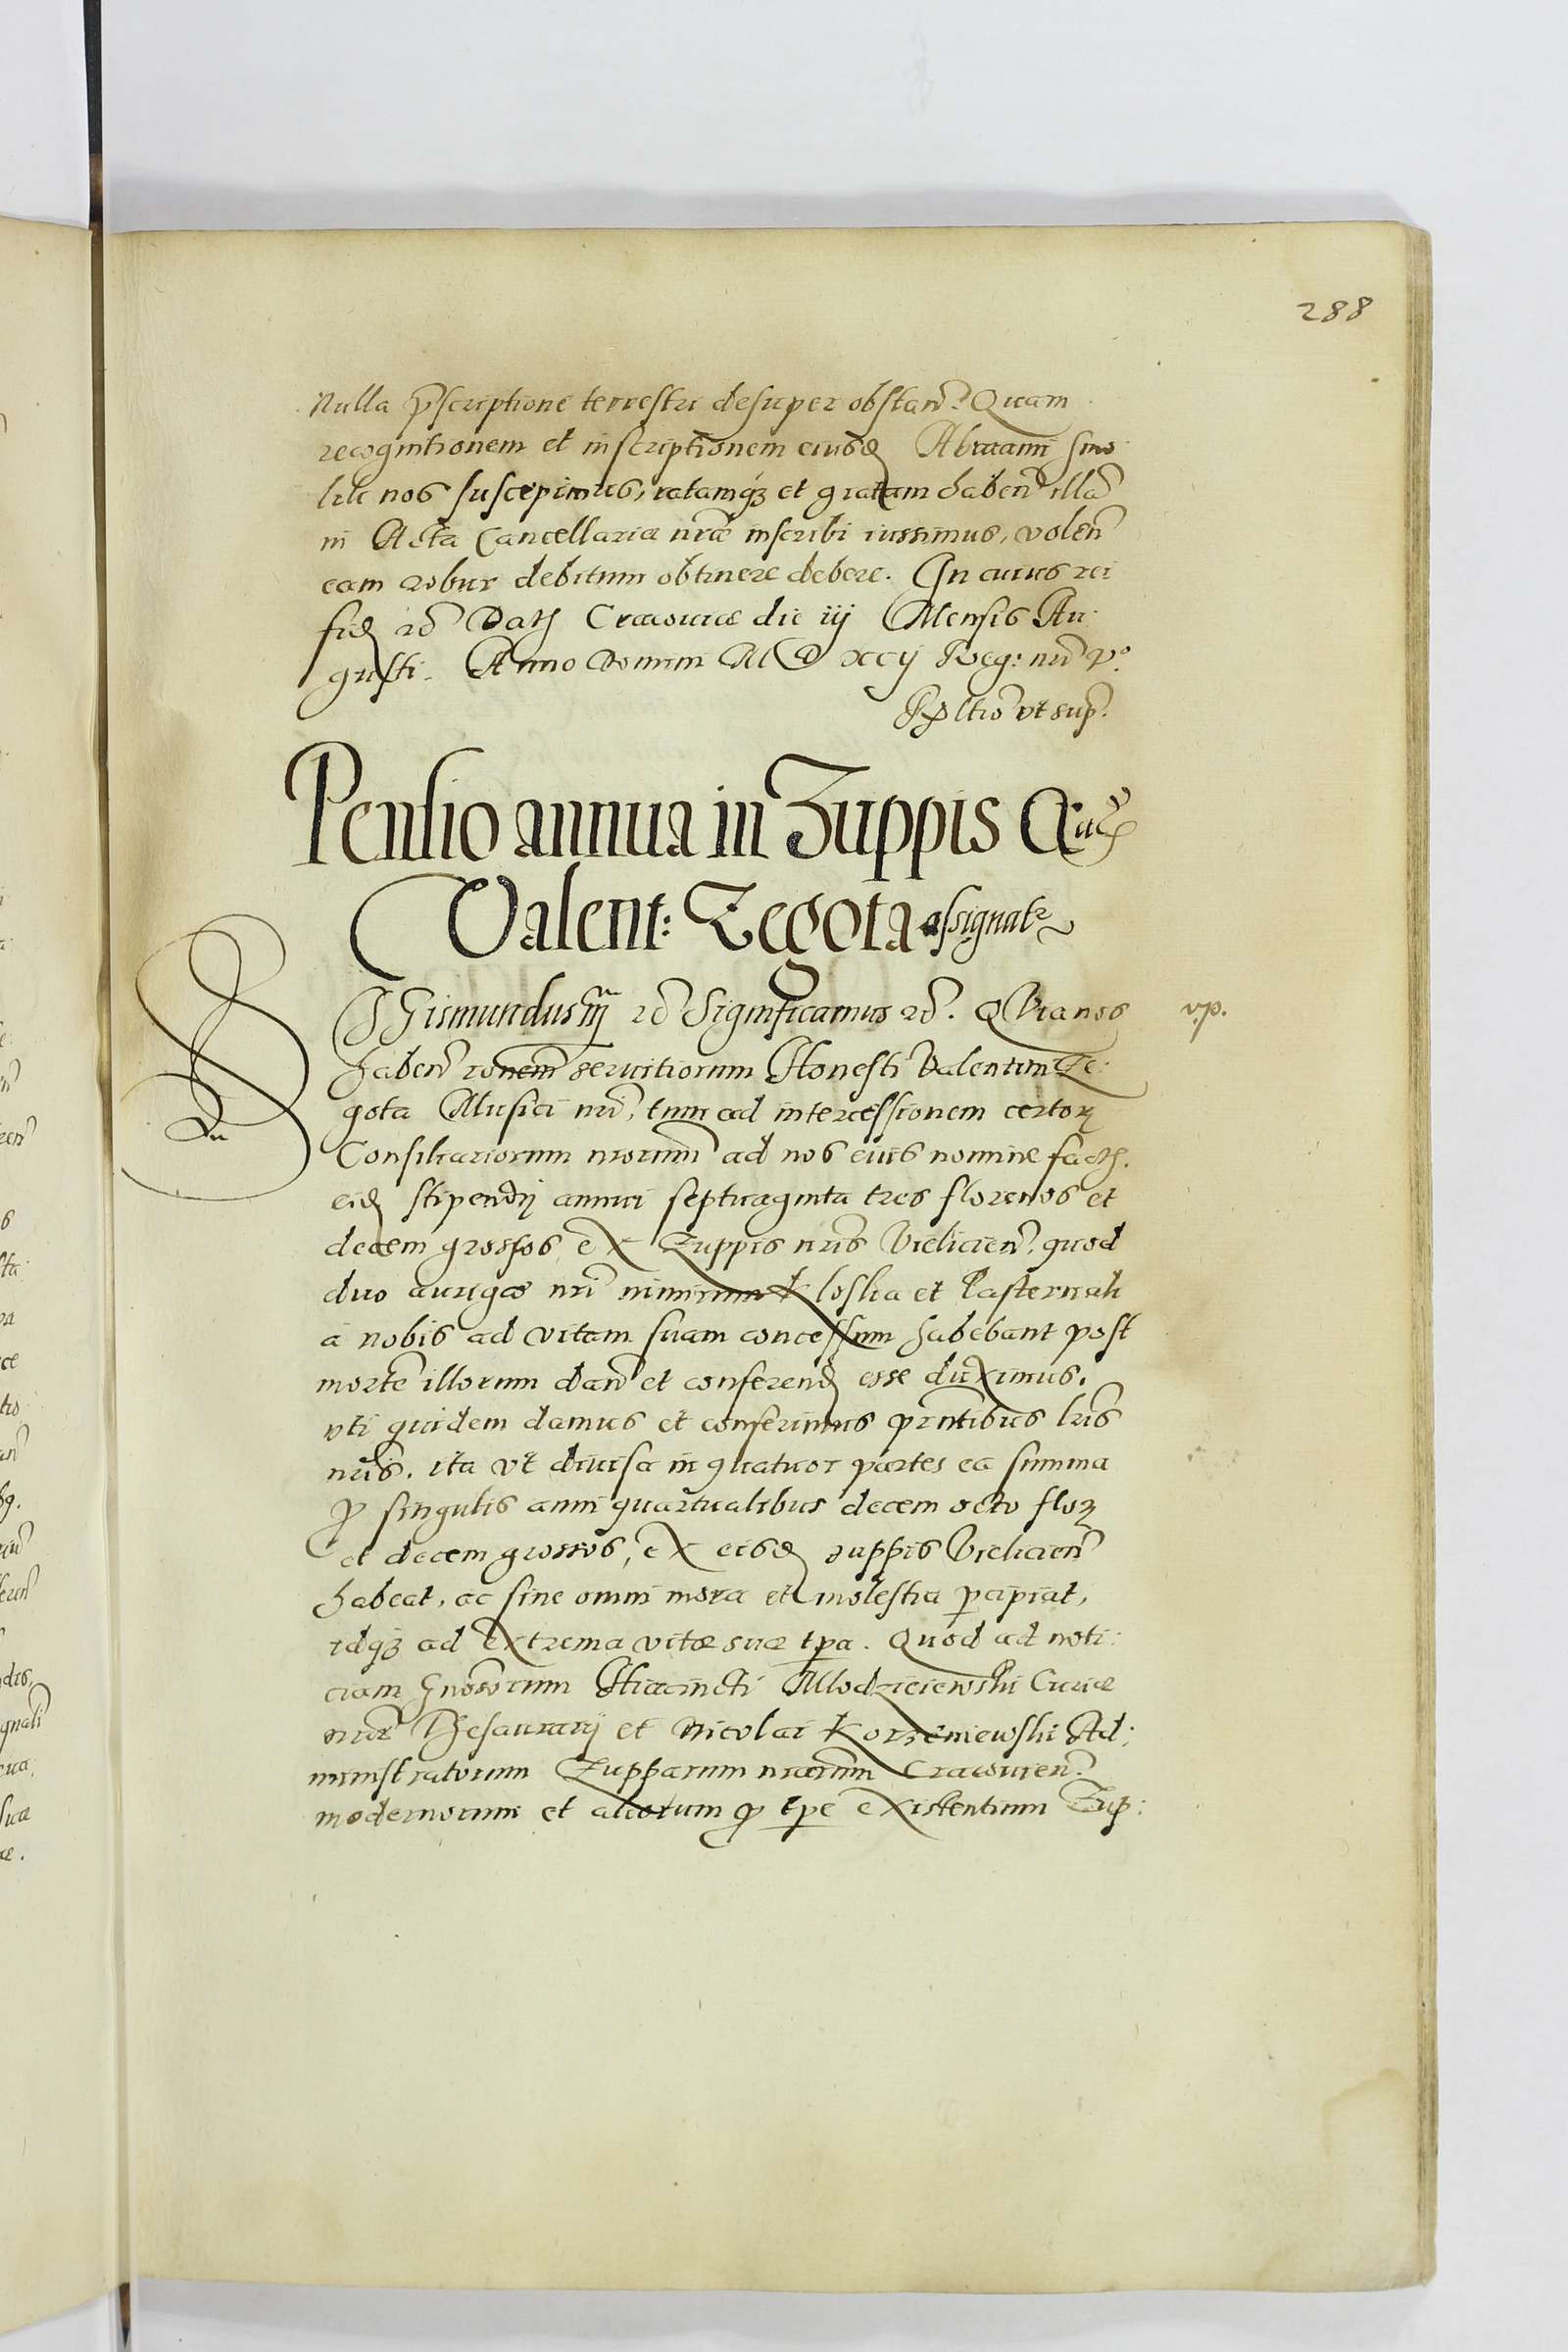 288
Nulla p̃scriptione terrestri desuper obstan̄. Quam
recognitionem et inscriptionem eiusd Abraami Smo
lik nos suscepimus, ratamqꝫ et gratam haben̄ illā
in Acta Cancellariæ nr̃æ inscribi iussimus, volen̄
eam robur debitum obtinere debere. In cuius rei
fid &c̃ Dat Cracouiæ die iij Mensis Au:
gusti. Anno Domini M D xcij Reg: nr̃i vº
Rel̃tio vt sup̃.
Pensio annua in Zuppis
Valent: Zegota assignat᷑
SIGismundus iij &c̃ Significamus &c̃. Quia nos
v.p.
haben̄ rõnem seruitiorum Honesti Valentini Ze:
gota Musici nr̃i, tum ad intercessionem certoꝝ
Consiliariorum nr̃orum ad nos eius nomine fact.
eid stipendij annui septuaginta tres florenos et
decem grossos, ex Zuppis nr̃is Vielicien̄. quod
duo aurigæ nr̃i nimirum Kloska et Pasternak
à nobis ad vitam suam concessum habebant post
mortē illorum dan̄ et conferend esse duximus.
vti quidem damus et conferimus pr̃ntibus lr̃is
nr̃is. ita vt diuisa in quatuor partes ea summa
ꝓ singulis anni quartualibus decem octo floꝝ
et decem grossos, ex eisd zuppis Vielicien̄
habeat, ac sine omni mora et molestia ꝑcipiat,
idqꝫ ad extrema vitæ suæ tp̃a. Quod ad noti:
ciam Gnosorum Hiacincti Mlodzieiewski Curiæ
nr̃æ Thesaurarij et Nicolai Korzeniewski Ad:
ministratorum Zupparum nr̃arum Cracouien̄.
modernorum et aliorum ꝓ tp̃e existentium Zup: